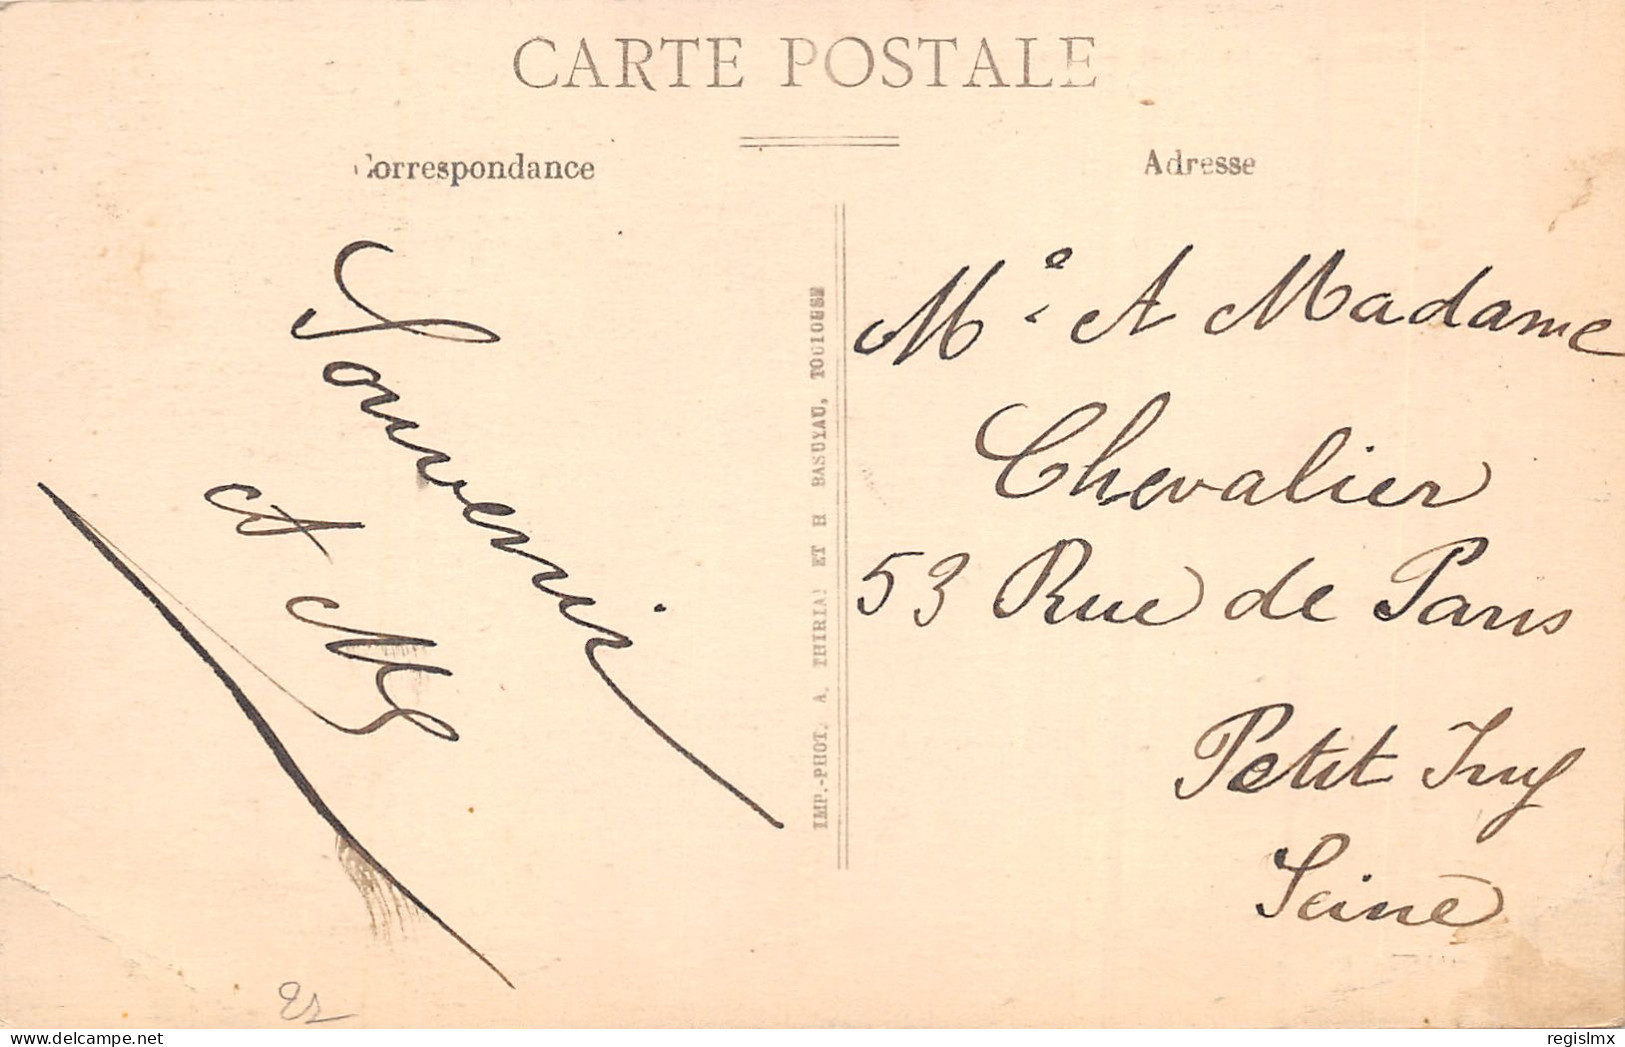 CARTE POSTALE
Correspondance
Adresse
Souvenir
IMP.-PHOT. A. THIRIAT ET H BASUYAU, TOULOUSE
Mr et Madame
Chevalier
53 Rue de Paris
Petit Ivry
Seine
regislmx